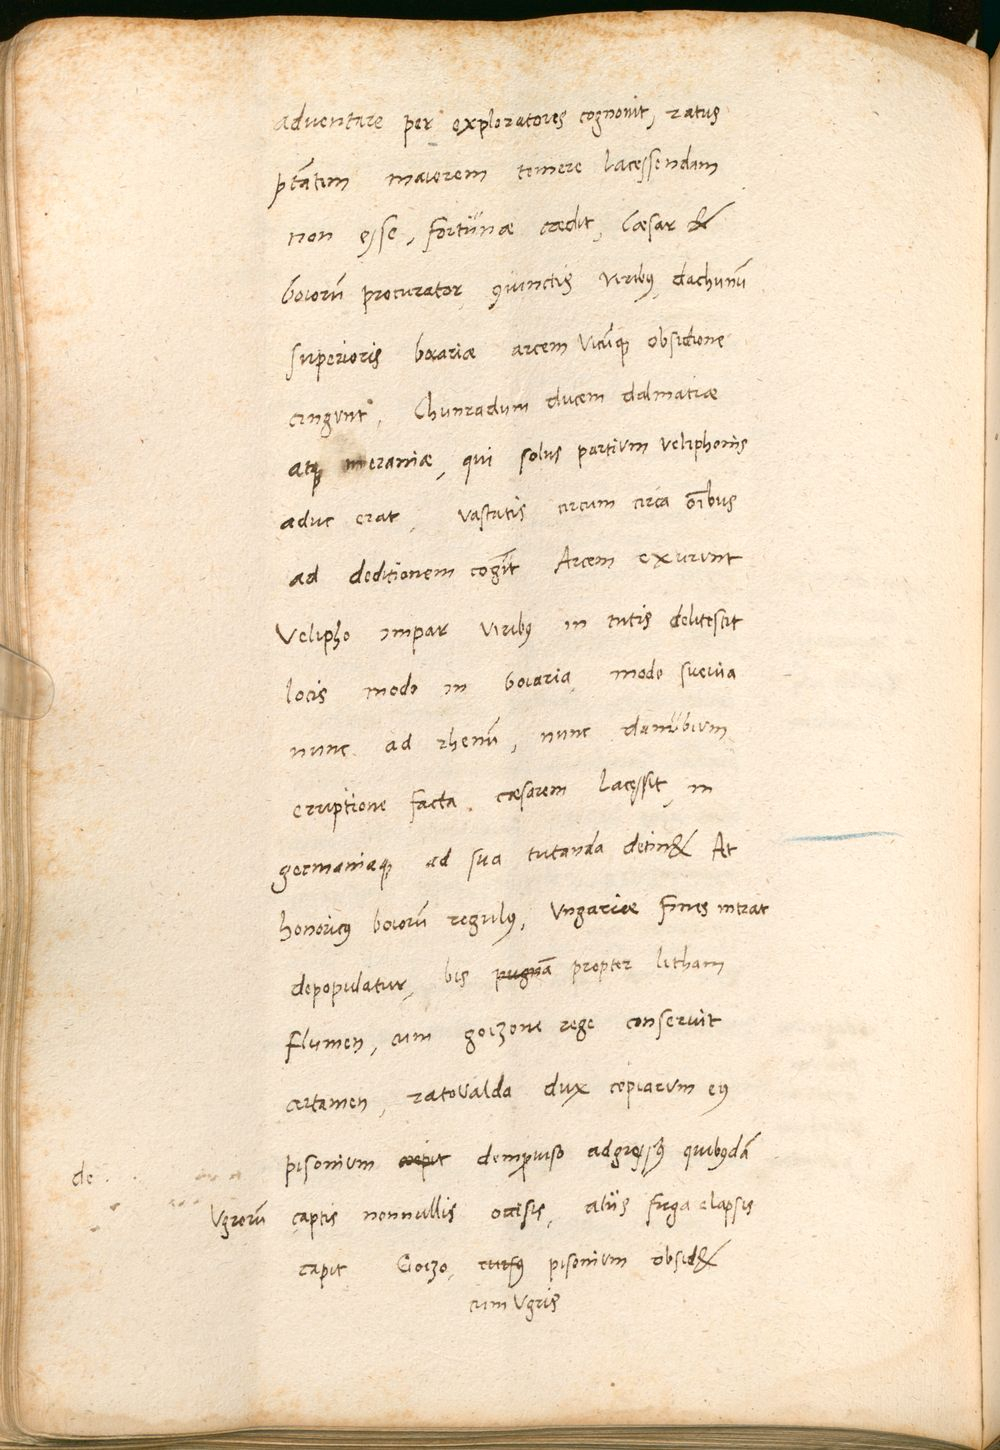 adventare per exploratores cognouit, ratus
ptãtem maiorem temere lacessendam
non esse, fortunæ cædit, Cæsar &
boiorũ procurator, 9iunctis viribꝰ, dachunũ
superioris boariæ arcem vicũq; obsidione
cingunt, Chunradum ducem dalmatiæ
atq; meraniæ, qui solus partium veliphonis
aduc erat, vastatis circum circa oĩbus
ad deditionem cogũt Arcem exurunt
Velipho impar viribꝰ in tutis delitescit
locis modo in boiaria, modo sueuia
nunc ad rhenũ, nunc danubium
erruptione facta, cæsarem lacessit, in
germaniaq; ad sua tutanda detin& At
honoricꝰ boiorũ regulꝰ, Vngariæ fines intrat
depopulatur, bis pugnã propter litham
flumen, cum goizone rege conseruit
certamen, ratovalda dux copiarum eiꝰ
pisonium cæpit de improuiso adgressꝰ quibꝰdã
de
Vgrorũ captis nonnullis occisis, aliis fuga elapsis
capit Goizo, rursꝰ pisonium obsid&
cum Vgris